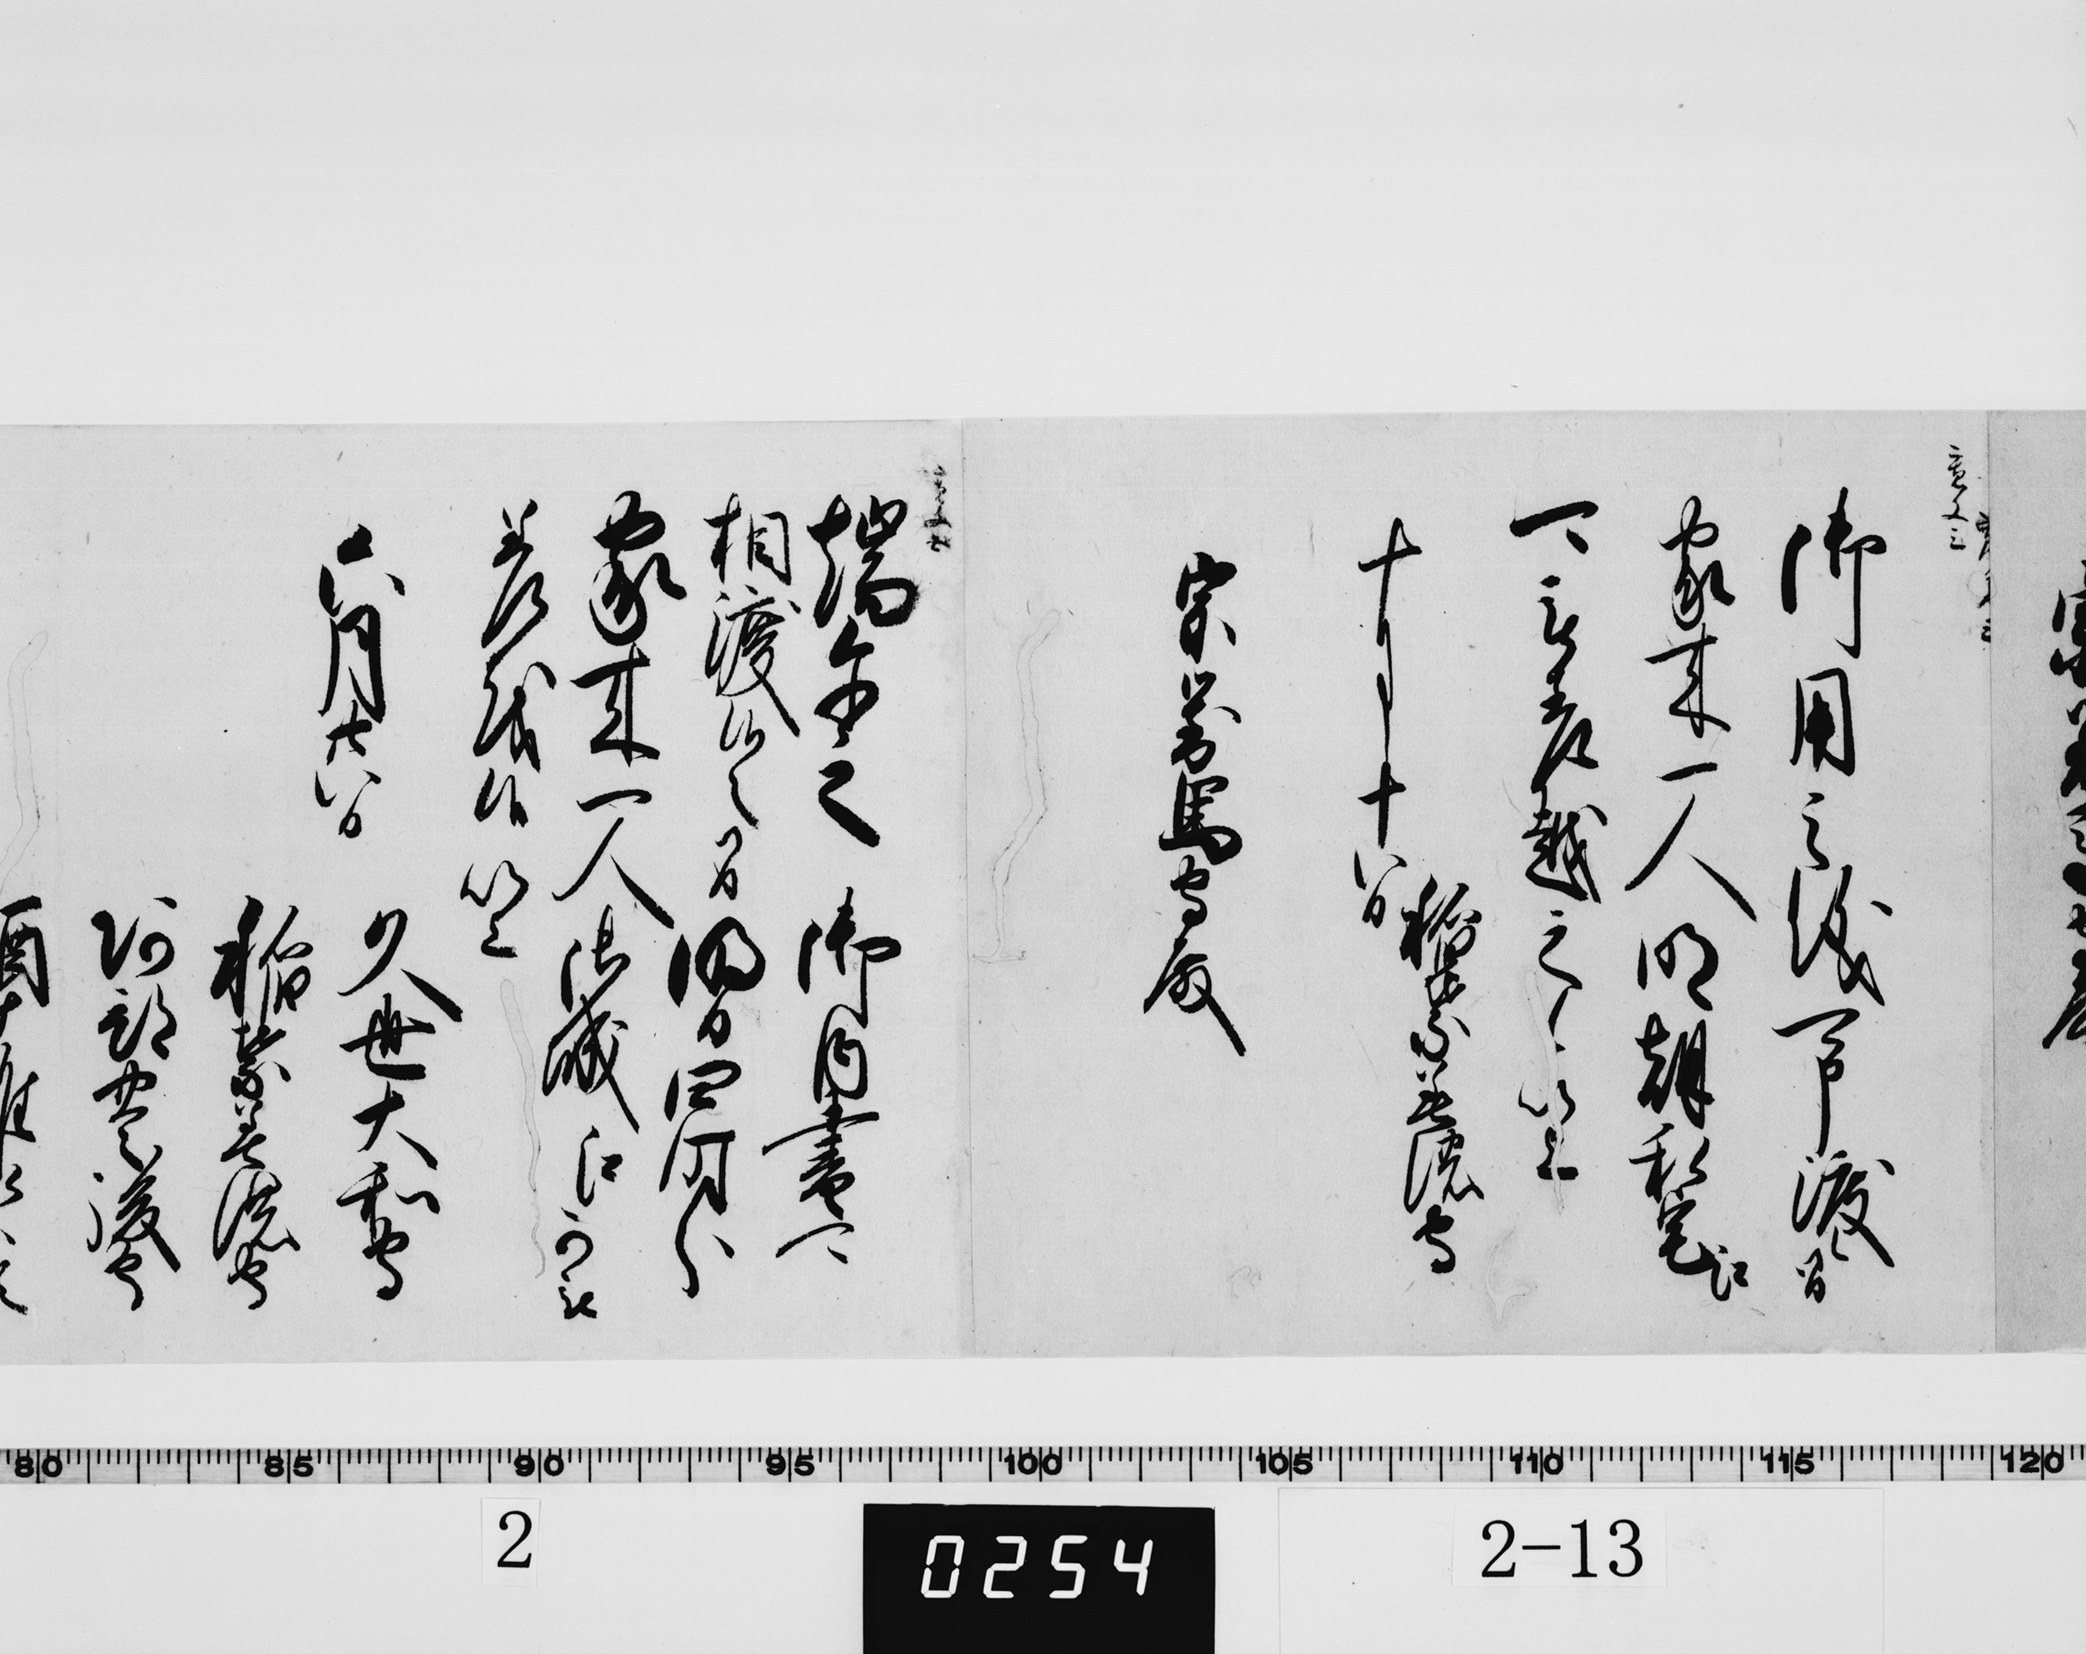 寛文三
御用之儀可申渡間
家来一人明朝私宅江
可被差越之候以上
十月十八日
稲葉美濃守
宗對馬守殿
端午之御内書可
相渡候之間明日四時分
家来一人御城江可被
差越候以上
六月廿八日
久世大和守
稲葉美濃守
阿部豊後守
酒井雅楽
80 85 90 95 100 105 110 115 120
2
0254
2-13